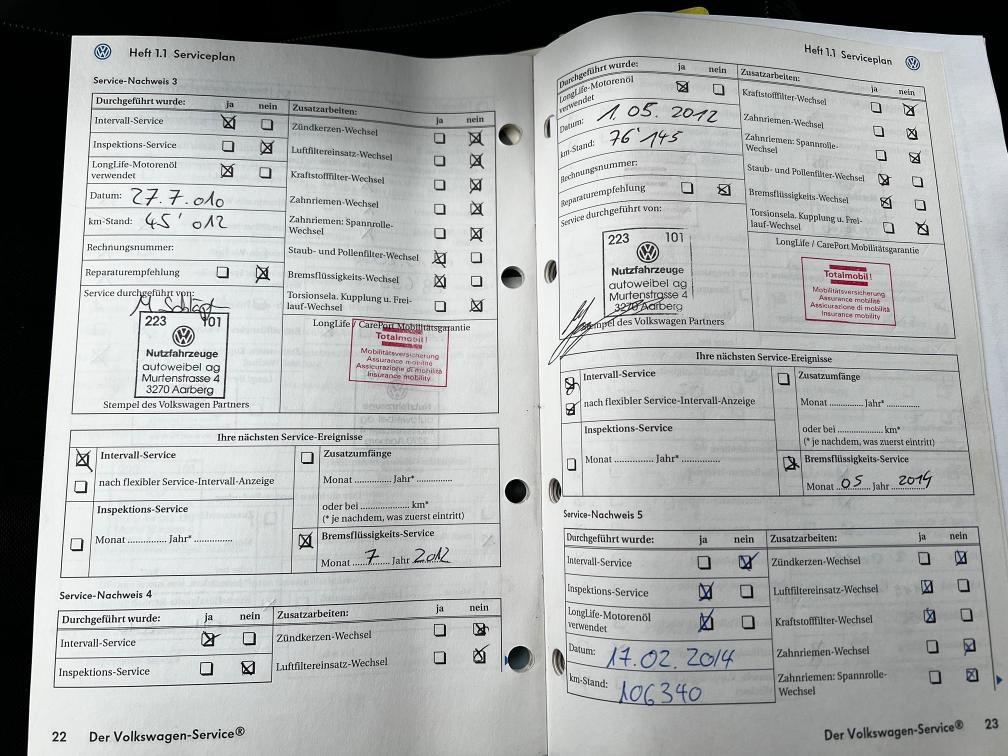 Heft 1.1 Serviceplan
Service-Nachweis 3
Durchgeführt wurde: ja nein
Intervall-Service
Inspektions-Service
LongLife-Motorenöl
verwendet
Datum: 27.7.010
km-Stand: 45'012
Rechnungsnummer:
Reparaturempfehlung
Service durchgeführt von:
223 101
Nutzfahrzeuge
autoweibel ag
Murtenstrasse 4
3270 Aarberg
Stempel des Volkswagen Partners
Zusatzarbeiten: ja nein
Zündkerzen-Wechsel
Luftfiltereinsatz-Wechsel
Kraftstofffilter-Wechsel
Zahnriemen-Wechsel
Zahnriemen: Spannrolle-
Wechsel
Staub- und Pollenfilter-Wechsel
Bremsflüssigkeits-Wechsel
Torsionsela. Kupplung u. Frei-
lauf-Wechsel
LongLife / CarePort Mobilitätsgarantie
Totalmobil!
Mobilitätsversicherung
Assurance mobilité
Assicurazione di mobilità
Insurance mobility
Ihre nächsten Service-Ereignisse
Intervall-Service
nach flexibler Service-Intervall-Anzeige
Inspektions-Service
Monat .............. Jahr* ..............
Zusatzumfänge
Monat .............. Jahr* ..............
oder bei .................... km*
(* je nachdem, was zuerst eintritt)
Bremsflüssigkeits-Service
Monat 7 Jahr 2012
Service-Nachweis 4
Durchgeführt wurde: ja nein
Intervall-Service
Inspektions-Service
Zusatzarbeiten: ja nein
Zündkerzen-Wechsel
Luftfiltereinsatz-Wechsel
22 Der Volkswagen-Service®
Heft 1.1 Serviceplan
Durchgeführt wurde: ja nein
LongLife-Motorenöl
verwendet
Datum: 1.05.2012
km-Stand: 76'145
Rechnungsnummer:
Reparaturempfehlung
Service durchgeführt von:
223 101
Nutzfahrzeuge
autoweibel ag
Murtenstrasse 4
3270 Aarberg
Stempel des Volkswagen Partners
Zusatzarbeiten: ja nein
Kraftstofffilter-Wechsel
Zahnriemen-Wechsel
Zahnriemen: Spannrolle-
Wechsel
Staub- und Pollenfilter-Wechsel
Bremsflüssigkeits-Wechsel
Torsionsela. Kupplung u. Frei-
lauf-Wechsel
LongLife / CarePort Mobilitätsgarantie
Totalmobil!
Mobilitätsversicherung
Assurance mobilité
Assicurazione di mobilità
Insurance mobility
Ihre nächsten Service-Ereignisse
Intervall-Service
nach flexibler Service-Intervall-Anzeige
Inspektions-Service
Monat .............. Jahr* ..............
Zusatzumfänge
Monat .............. Jahr* ..............
oder bei .................... km*
(* je nachdem, was zuerst eintritt)
Bremsflüssigkeits-Service
Monat 05 Jahr 2014
Service-Nachweis 5
Durchgeführt wurde: ja nein
Intervall-Service
Inspektions-Service
LongLife-Motorenöl
verwendet
Datum: 17.02.2014
km-Stand: 106340
Zusatzarbeiten: ja nein
Zündkerzen-Wechsel
Luftfiltereinsatz-Wechsel
Kraftstofffilter-Wechsel
Zahnriemen-Wechsel
Zahnriemen: Spannrolle-
Wechsel
Der Volkswagen-Service® 23